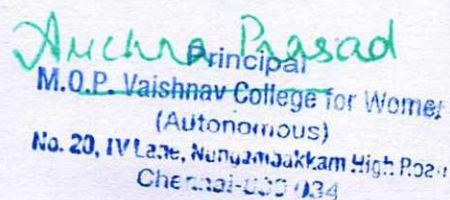 Archna Prasad
Principal
M.O.P. Vaishnav College for Women
(Autonomous)
No. 20, IV Lane, Nungambakkam High Road
Chennai-600 034